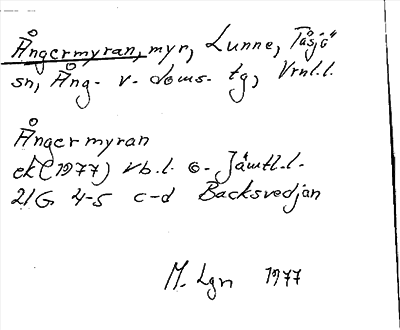 Ångermyran, myr, Lunne, Tåsjö
sn, Ång. v. doms. tg, Vrnl.l.
Ångermyran
ek (1977) Vb.l. o. Jämtl.l.
21G 4-5 c-d Backsvedjan
M. Lgn 1977